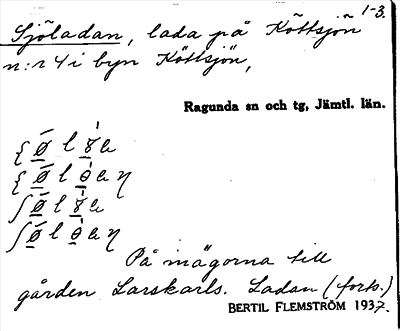 1-3.
Sjöladan, lada på Köttsjön
n:r 4 i byn Köttsjön,
Ragunda sn och tg, Jämtl. län.
På mägorna till
gården Larskarls. Ladan (forts.)
BERTIL FLEMSTRÖM 1937.